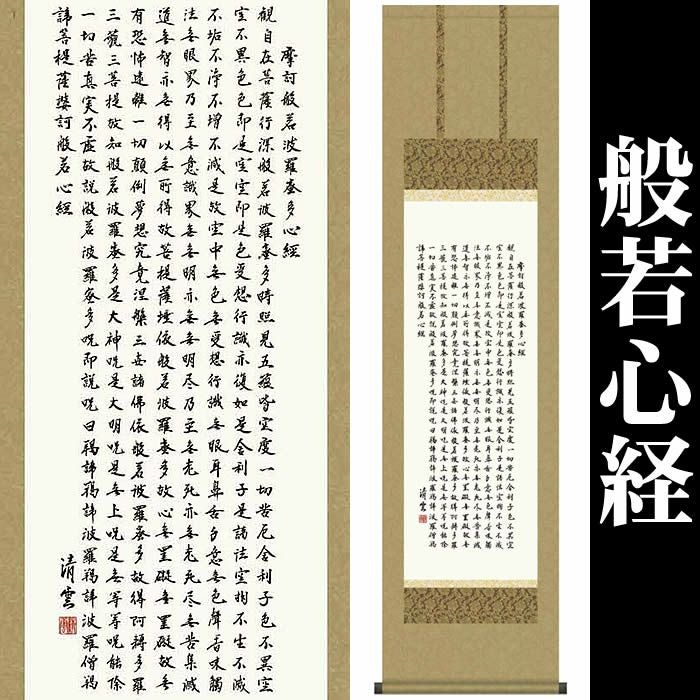 摩訶般若波羅蜜多心經
觀自在菩薩行深般若波羅蜜多時照見五蘊皆空度一切苦厄舎利子色不異空
空不異色色即是空空即是色受想行識亦復如是舎利子是諸法空相不生不滅
不垢不浄不増不減是故空中無色無受想行識無眼耳鼻舌身意無色聲香味觸
法無眼界乃至無意識界無無明亦無無明尽乃至無老死亦無老死尽無苦集滅
道無智亦無得以無所得故菩提薩埵依般若波羅蜜多故心無罣礙無罣礙故無
有恐怖遠離一切顛倒夢想究竟涅槃三世諸佛依般若波羅蜜多故得阿耨多羅
三藐三菩提故知般若波羅蜜多是大神呪是大明呪是無上呪是無等等呪能除
一切苦真実不虚故説般若波羅蜜多呪即説呪曰羯諦羯諦波羅羯諦波羅僧羯
諦菩提薩婆訶般若心經
清雲
摩訶般若波羅蜜多心經
觀自在菩薩行深般若波羅蜜多時照見五蘊皆空度一切苦厄舎利子色不異空
空不異色色即是空空即是色受想行識亦復如是舎利子是諸法空相不生不滅
不垢不浄不増不減是故空中無色無受想行識無眼耳鼻舌身意無色聲香味觸
法無眼界乃至無意識界無無明亦無無明尽乃至無老死亦無老死尽無苦集滅
道無智亦無得以無所得故菩提薩埵依般若波羅蜜多故心無罣礙無罣礙故無
有恐怖遠離一切顛倒夢想究竟涅槃三世諸佛依般若波羅蜜多故得阿耨多羅
三藐三菩提故知般若波羅蜜多是大神呪是大明呪是無上呪是無等等呪能除
一切苦真実不虚故説般若波羅蜜多呪即説呪曰羯諦羯諦波羅羯諦波羅僧羯
諦菩提薩婆訶般若心經
清雲
般若心経